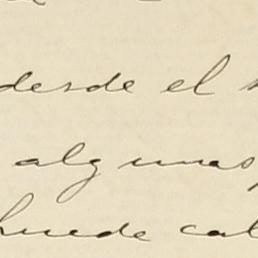 desde el
algunas,
puede cal